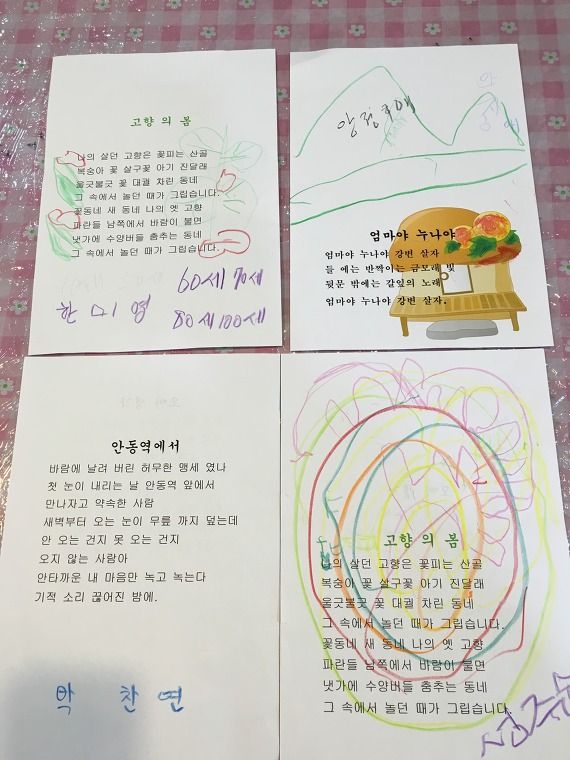 고향의 봄
나의 살던 고향은 꽃피는 산골
복숭아 꽃 살구꽃 아기 진달래
울긋불긋 꽃 대궐 차린 동네
그 속에서 놀던 때가 그립습니다.
꽃동네 새 동네 나의 옛 고향
파란들 남쪽에서 바람이 불면
냇가에 수양버들 춤추는 동네
그 속에서 놀던 때가 그립습니다.
60세 70세
한미영
80세 100세
엄마야 누나야
엄마야 누나야 강변 살자
들 에는 반짝이는 금모래 빛
뒷문 밖에는 갈잎의 노래
엄마야 누나야 강변 살자.
안동역에서
바람에 날려 버린 허무한 맹세 였나
첫 눈이 내리는 날 안동역 앞에서
만나자고 약속한 사람
새벽부터 오는 눈이 무릎 까지 덮는데
안 오는 건지 못 오는 건지
오지 않는 사람아
안타까운 내 마음만 녹고 녹는다
기적 소리 끊어진 밤에.
박 찬 연
고향의 봄
나의 살던 고향은 꽃피는 산골
복숭아 꽃 살구꽃 아기 진달래
울긋불긋 꽃 대궐 차린 동네
그 속에서 놀던 때가 그립습니다.
꽃동네 새 동네 나의 옛 고향
파란들 남쪽에서 바람이 불면
냇가에 수양버들 춤추는 동네
그 속에서 놀던 때가 그립습니다.